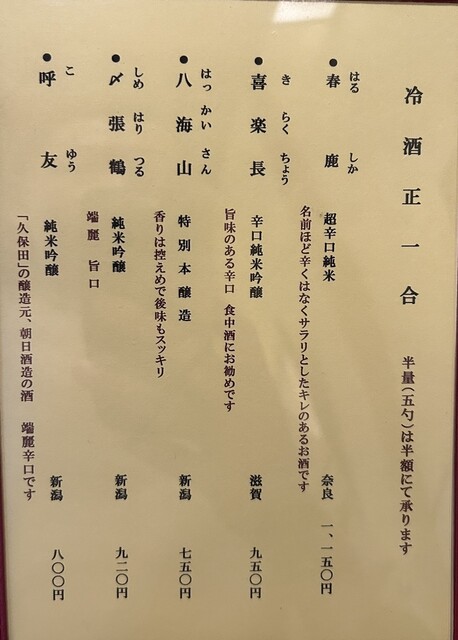 冷酒正一合　半量(五勺)は半額にて承ります
●春鹿　はるしか　超辛口純米　奈良　一、一五〇円
名前ほど辛くはなくサラリとしたキレのあるお酒です
●喜楽長　きらくちょう　辛口純米吟醸　滋賀　九五〇円
旨味のある辛口　食中酒にお勧めです
●八海山　はっかいさん　特別本醸造　新潟　七五〇円
香りは控えめで後味もスッキリ
●〆張鶴　しめはりつる　純米吟醸　新潟　九二〇円
端麗　旨口
●呼友　こゆう　純米吟醸　新潟　八〇〇円
「久保田」の醸造元、朝日酒造の酒　端麗辛口です